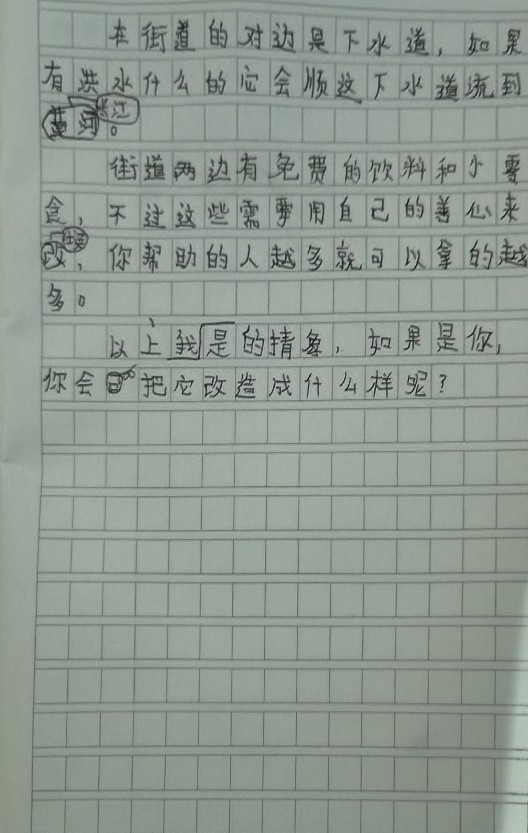 在街道的对边是下水道，如果
有洪水什么的它会顺这下水道流到
黄河。
街道两边有免费的饮料和小零
食，不过这些需要用自己的善心来
改，你帮助的人越多就可以拿的越
多。
以上、我是的精象，如果是你，
你会把它改造成什么样呢？